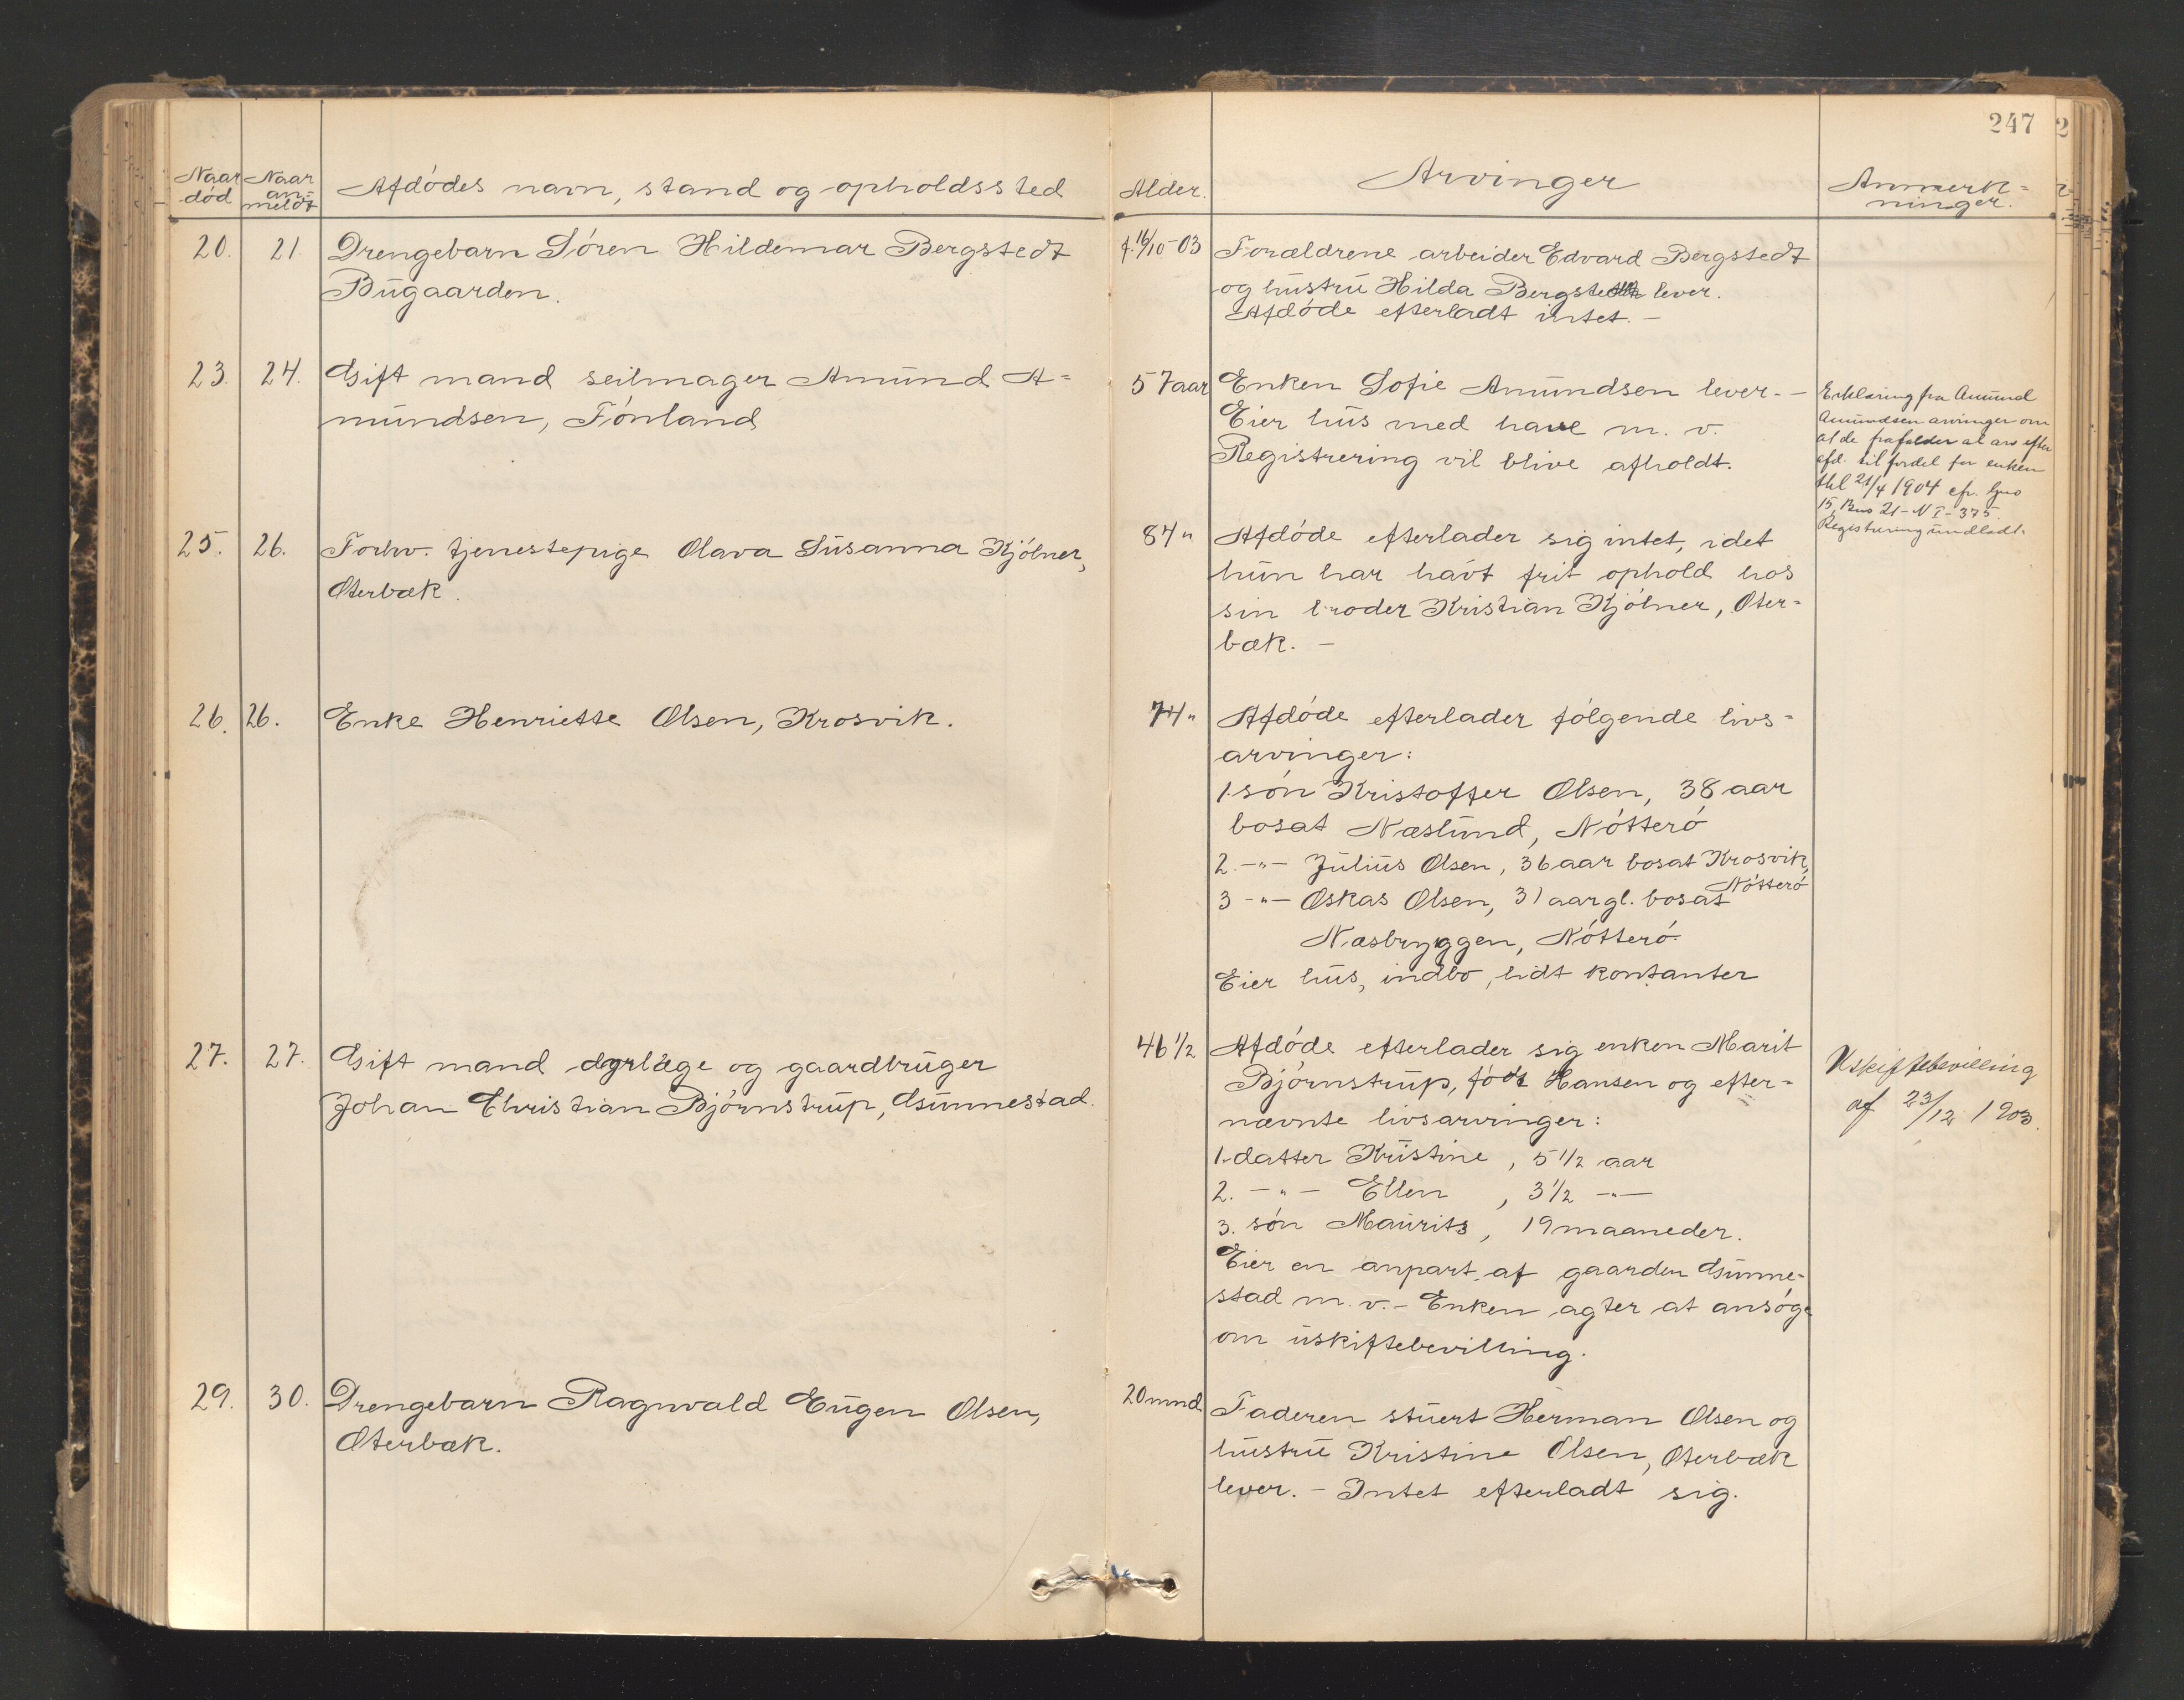 247
2
Naar død
Naar an=meldt
Afdødes navn, stand og opholdssted
Alder.
Arvinger
Anmerk=
ninger.
20. 21. Drengebarn Sören Hildemar Bergstedt
Bugaarden.
f. 16/10-03
Forældrene arbeider Edvard Bergstedt
og hustru Hilda Bergstedt lever.
Afdøde efterladt intet. -
23. 24. Gift mand seilmager Amund A=
mundsen, Fönland
57 aar
Enken Sofie Amundsen lever. -
Eier hus med have m. v.
Registrering vil blive afholdt.
Erklæring fra Amund
Amundsen arvinger om
at de frafalder al arv efter
afd. til fordel for enken
thl 21/4 1904 cfr. Jno
15, Bno 21-N I-375.
Registrering undladt.
25. 26. Forhv. tjenestepige Olava Susanna Kjölner,
Oterbæk.
84 "
Afdøde efterlader sig intet, idet
hun har havt frit ophold hos
sin broder Kristian Kjölner, Oter=
bæk. -
26. 26. Enke Henriette Olsen, Krosvik.
74 "
Afdøde efterlader følgende livs=
arvinger:
1. søn Kristoffer Olsen, 38 aar
bosat Næslund, Nötterö
2. -"- Julius Olsen, 36 aar bosat Krosvik,
Nötterö
3 -"- Oskas Olsen, 31 aar gl. bosat
Næsbryggen, Nötterö.
Eier hus, indbo, lidt kontanter
27. 27. Gift mand dyrlæge og gaardbruger
Johan Christian Björnstrup, Gunnestad.
46 1/2
Afdøde efterlader sig enken Marit
Björnstrup, født Hansen og efter=
nævnte livsarvinger:
1. datter Kristine, 5 1/2 aar
2. -"- Ellen, 3 1/2 -"-
3. søn Maurits, 19 maaneder.
Eier en anpart af gaarden Gunne=
stad m. v. - Enken agter at ansøge
om uskiftebevilling.
Uskiftebevilling
af 23/12 1903.
29. 30. Drengebarn Ragnvald Eugen Olsen,
Oterbæk.
20 mnd.
Faderen stuert Herman Olsen og
hustru Kristine Olsen, Oterbæk
lever. - Intet efterladt sig.